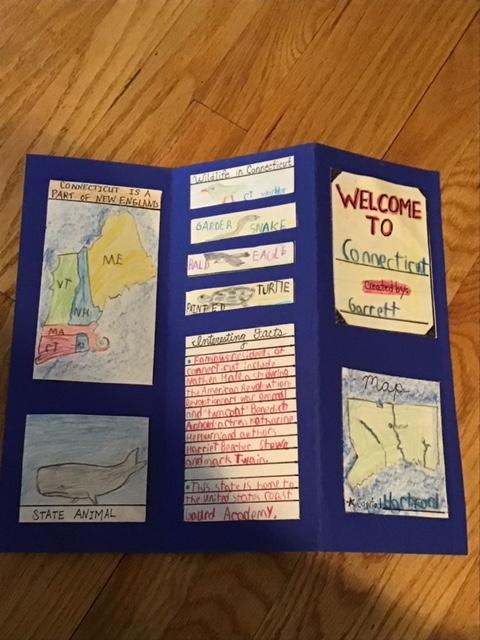 CONNECTICUT IS A
PART OF NEW ENGLAND
ME
VT
NH
MA
CT
STATE ANIMAL
Wildlife in Connecticut
GARDER SNAKE
BALD EAGLE
PAINTED TURTLE
Interesting Facts
• Famous residents of
connecticut include
Nathan Hale a spy during
the American Revolution.
Revolutionary war general
and "turncoat" Benedict
Arnold actress Katharine
Hepburn and authors
Harriet Beecher Stowe
and mark Twain.
• This state is home to
the united states coast
Guard Academy.
WELCOME
TO
Connecticut
Created by:
Garrett
Map
Hartford